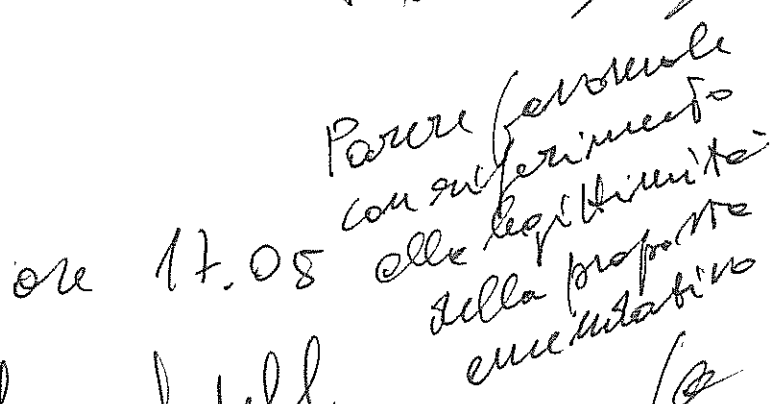 Parere favorevole
con riferimento
alla legittimità
della proposta
emendativa
ore 17.05